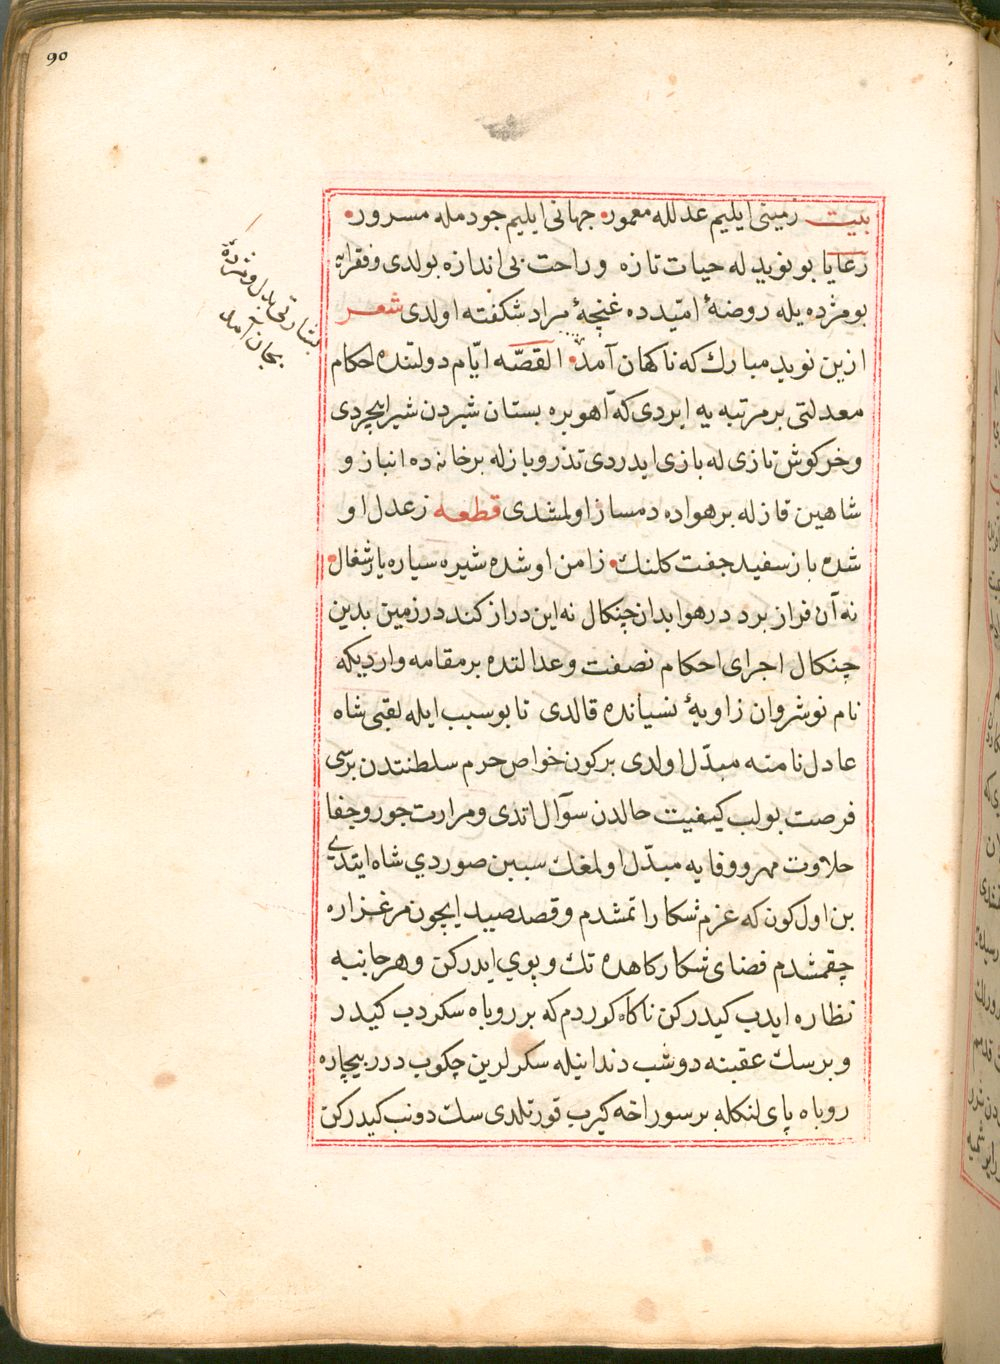 90
بیت زمینی ایلیم عدلله معمور جهانی ایلیم جودمله مسرور
رعایا بو نوید له حیات تازه و راحت بی اندازه بولدی و فقرایه
بو مژده یله روضهٔ امّیدده غنچهٔ مراد شکفته اولدی شعر
ازین نوید مبارك که ناکهان آمد القصّه ایّام دولتنده احکام
معدلتی بر مرتبه یه ایردی که آهو بره بستان شیردن شیر ایچردی
و خرکوش تازی له بازی ایدردی تذرو باز له بر خانه ده انباز و
شاهین قاز له بر هواده دمساز اولمشدی قطعه ز عدل او
شده باز سفید جفت کلنك ز امن او شده شیر سیاه یار شغال
نه آن فراز برد در هوا بدان چنکال نه این دراز کند در زمین بدین
چنکال اجرای احکام نصفت و عدالتده بر مقامه واردیکه
نام نوشروان زاویهٔ نسیانده قالدی تا بو سبب ایله لقبی شاه
عادل نامنه مبدّل اولدی بر کون خواص حرم سلطنتدن بریسی
فرصت بولب کیفیت حالدن سوآل اتدی و مرارت جور و جفا
حلاوت مهر و وفایه مبدّل اولمغك سببن صوردي شاه ایتدی
بن اول کون که عزم شکار اتمشدم و قصد صید ایچون مرغزاره
چقمشدم فضای شکارکاهده تك و پوي ایدرکن و هر جانبه
نظاره ایدب کیدرکن ناکاه کوردم که بر روباه سکردب کیدر
و بر سك عقبنه دوشب دندانیله سکرلرین چکوب درر بیچاره
روباه پای لنکله بر سوراخه کیرب قورتلدی سك دونب کیدرکن
بشارتی بدل و مژدهٔ
بجان آمد